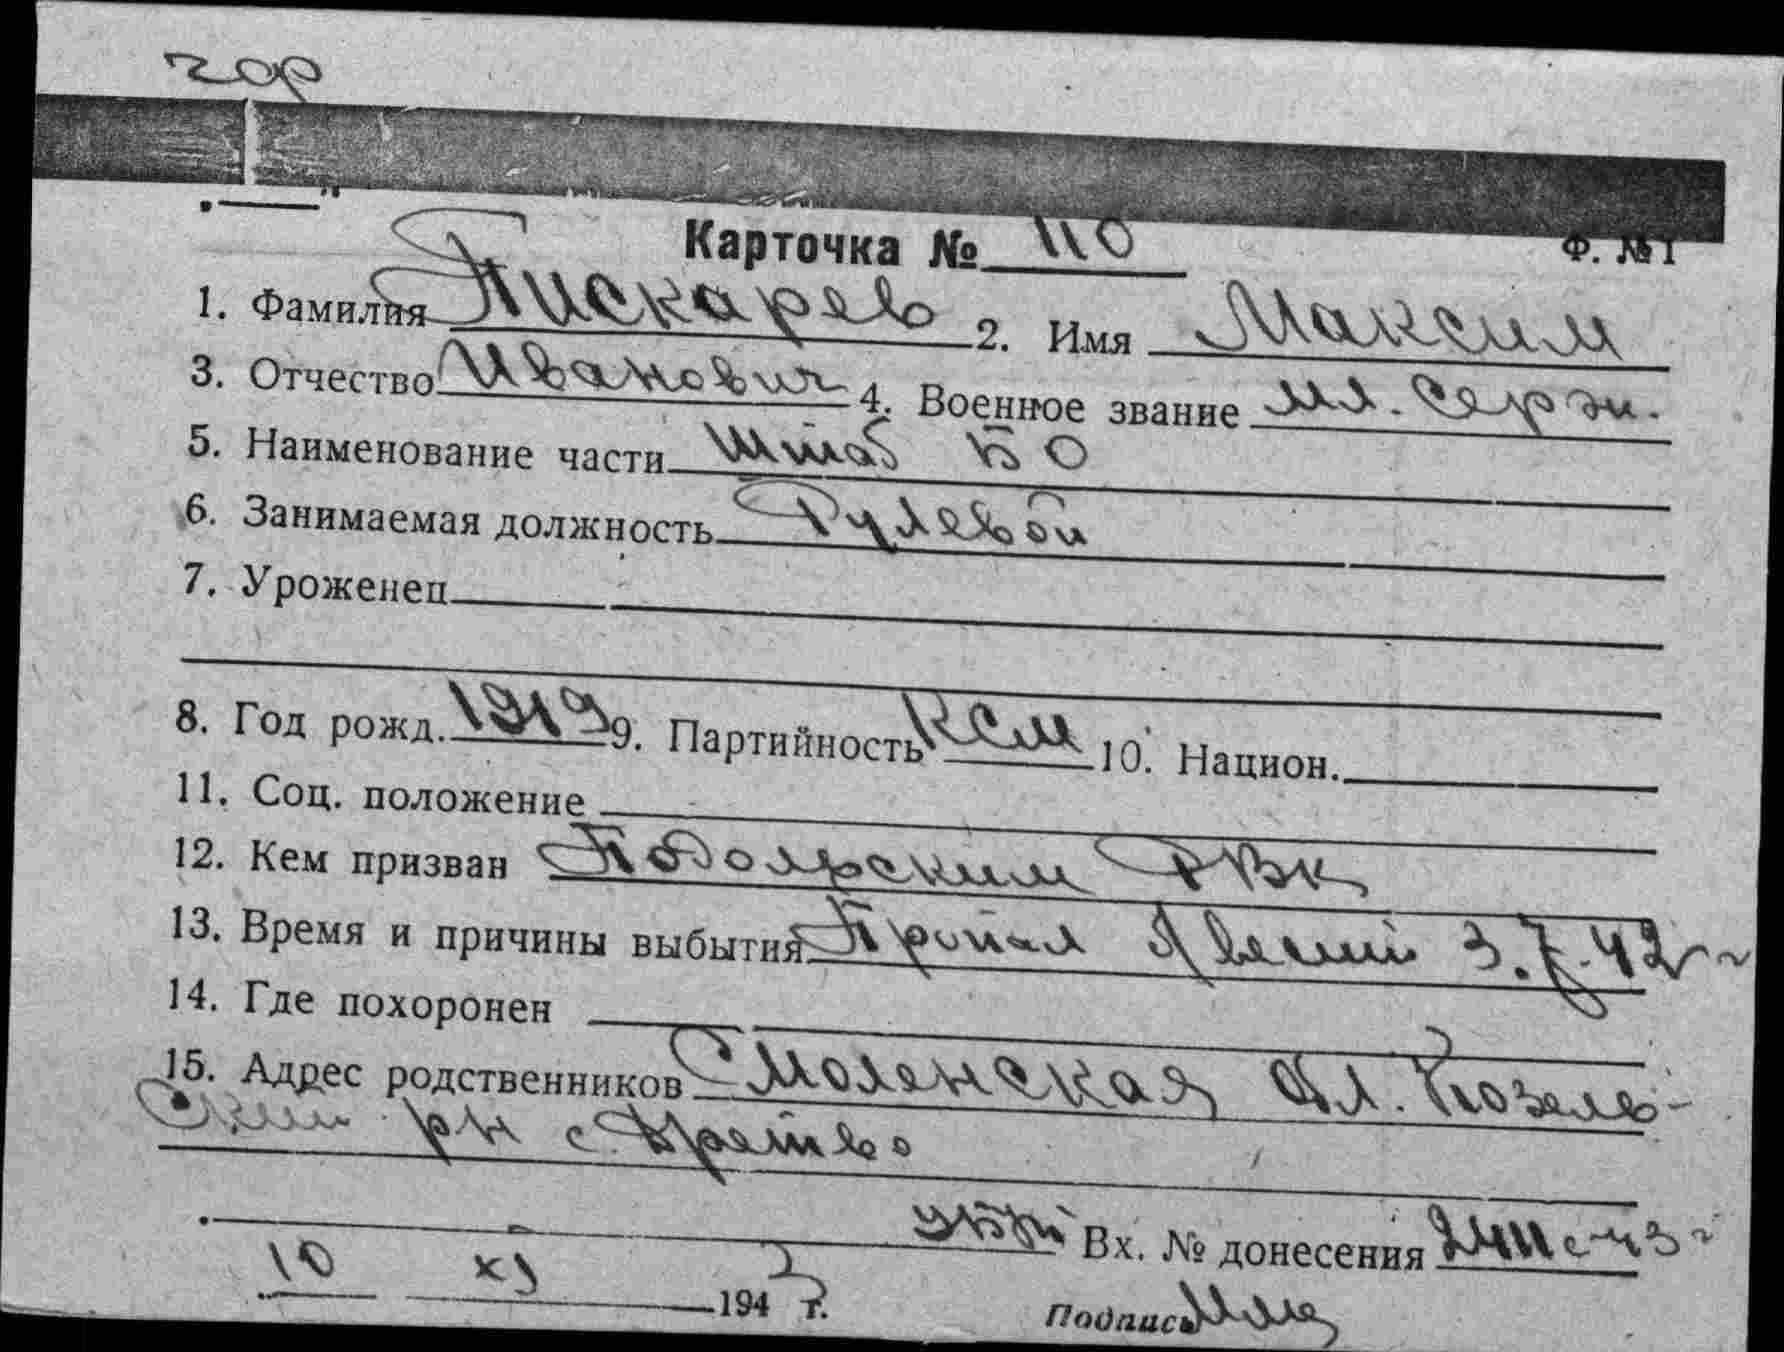 чор
Карточка № 110
Ф. № 1
1. Фамилия Пискарев 2. Имя Максим
3. Отчество Иванович 4. Военное звание мл. серж.
5. Наименование части Штаб БО
6. Занимаемая должность Рулевой
7. Уроженец
8. Год рожд. 1919 9. Партийность КСМ 10. Национ.
11. Соц. положение
12. Кем призван Подольским РВК
13. Время и причины выбытия Пропал 3.7.42 г
14. Где похоронен
15. Адрес родственников Смоленская обл. Козель-
ский р-н с.
Вх. № донесения с-43 г
10 XI 1943 г.
Подпись